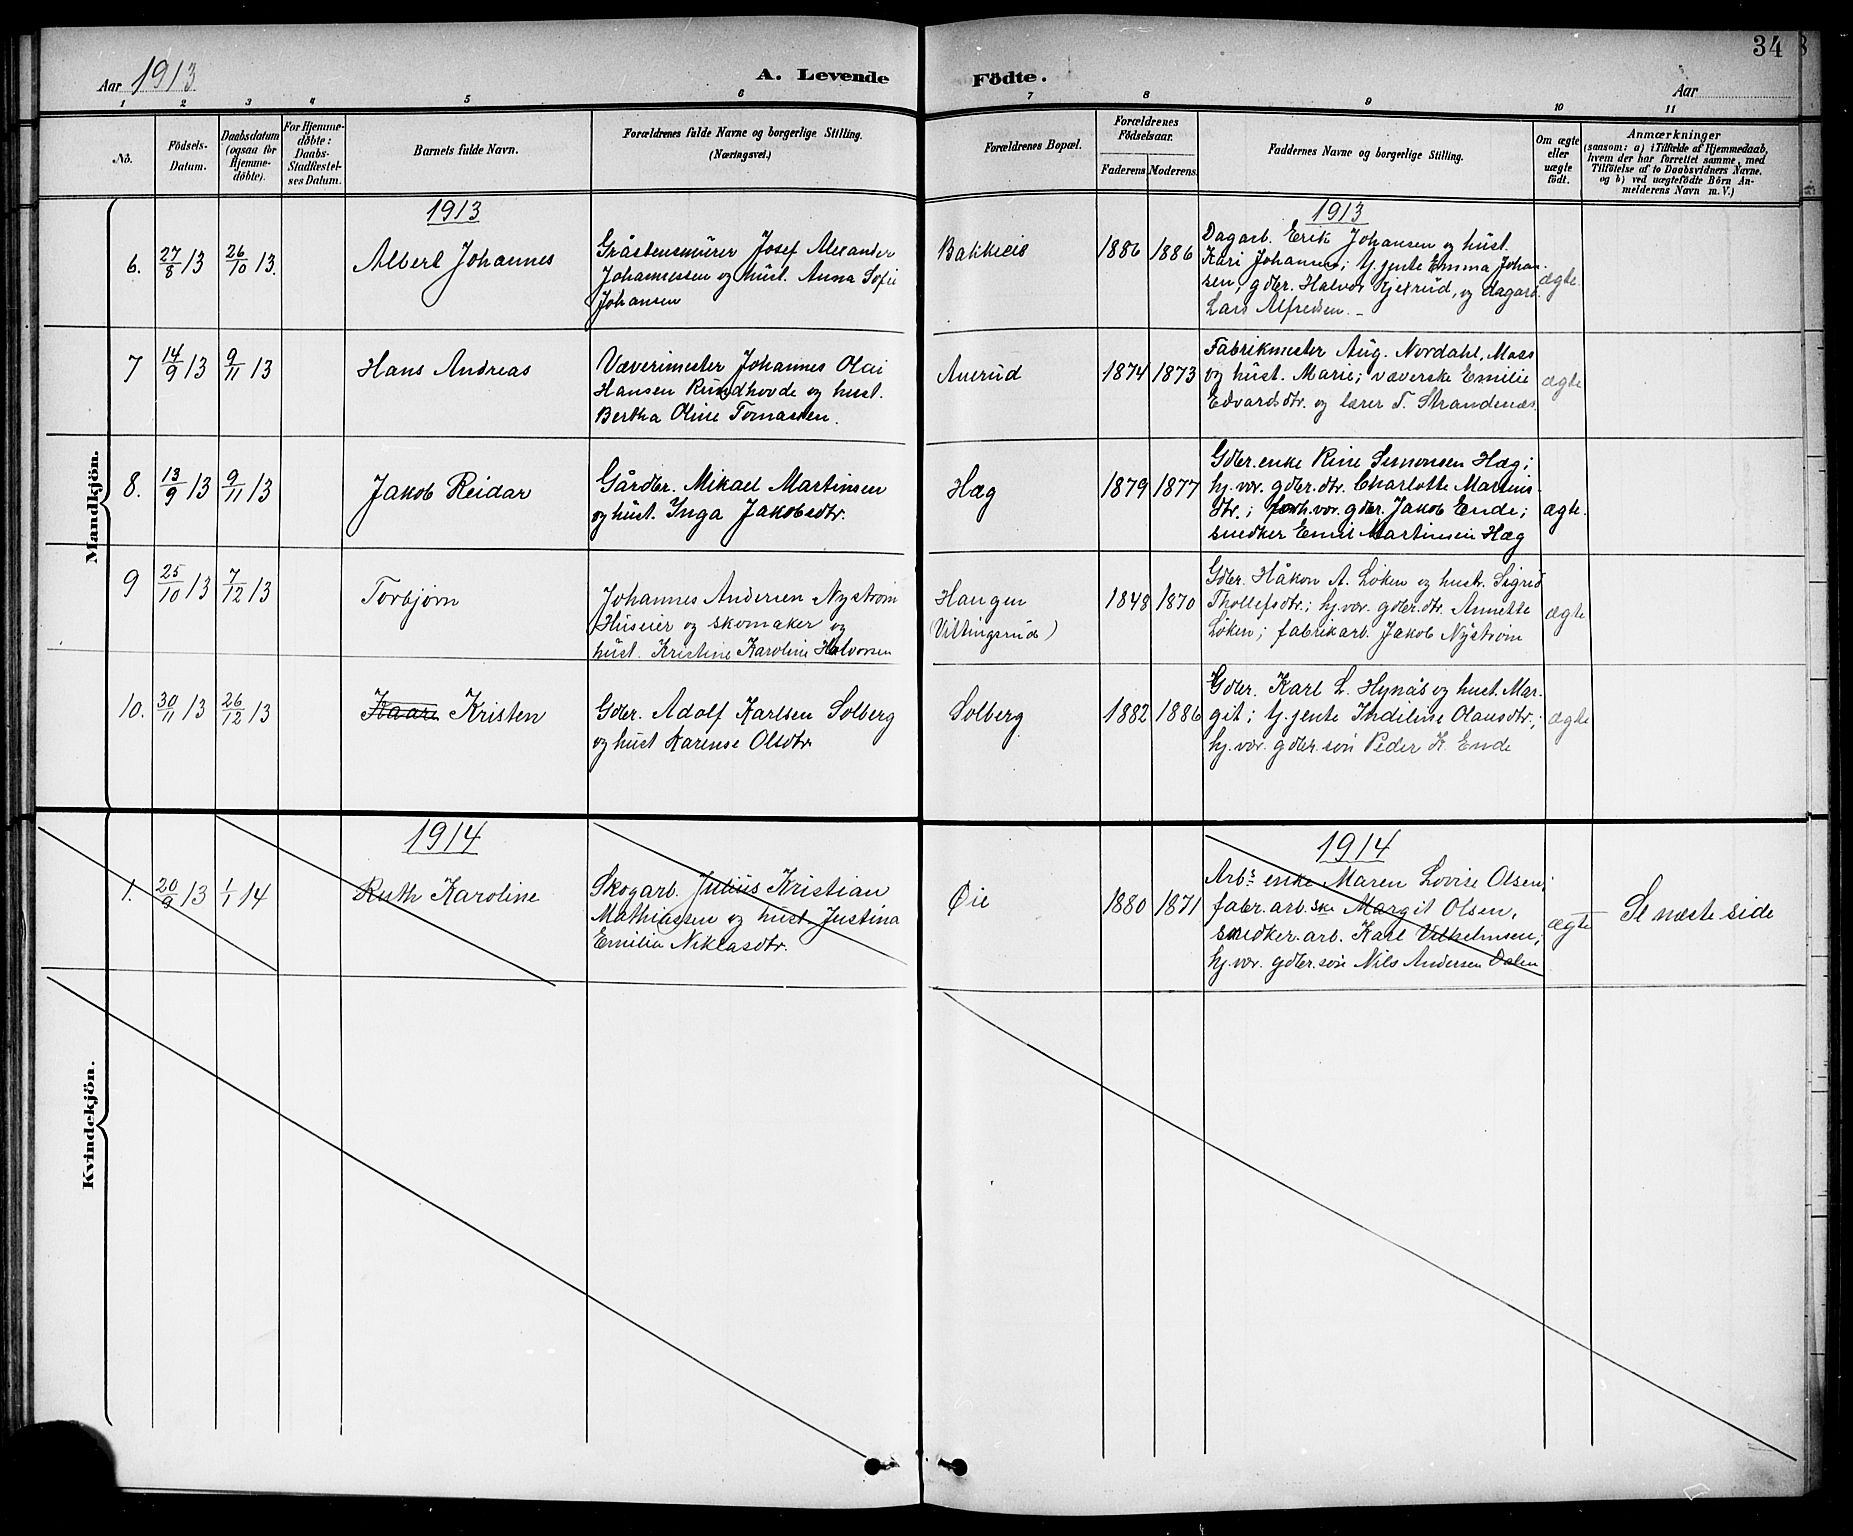 Aar 1913
A. Levende
Födte.
Aar
34
1 2 3 4 5 6 7 8 9 10 11
No.
Födsels-
Datum.
Daabsdatum
(ogsaa for
Hjemme-
döbte).
For Hjemme-
döbte:
Daabs-
Stadfæstel-
ses Datum.
Barnets fulde Navn.
Forældrenes fulde Navne og borgerlige Stilling.
(Næringsvei.)
Forældrenes Bopæl.
Forældrenes
Födselsaar.
Faderens. Moderens.
Faddernes Navne og borgerlige Stilling.
Om ægte
eller
uægte
födt.
Anmærkninger
(saasom: a) i Tilfælde af Hjemmedaab,
hvem der har forrettet samme, med
Tilföielse af to Daabsvidners Navne.
og b) ved uægtefödte Börn An-
melderens Navn m. V.)
Mandkjön.
1913
1913
6. 27/8 13 26/10 13.
Albert Johannes
Gråstensmurer Josef Alexander
Johannessen og hust. Anna Sofie
Johansen
Bakkeeie
1886 1886
Dagarb. Erik Johansen og hust.
Kari Johansen; tj.jente Emma Johan-
sen, gdbr. Halvor Gjetrud, og dagarb.
Lars Alfredsen. -
ægte.
7 14/9 13 9/11 13
Hans Andreas
Væverimester Johannes Olai
Hansen Rundhovde og hust.
Bertha Oline Tomassen.
Auerud
1874 1873
Fabrikmester Aug. Nordahl, Moss
og hust. Marie; væverske Emilie
Edvardsdtr. og lærer T. Strandenæs.
ægte
8. 13/9 13 9/11 13
Jakob Reidar
Gårdbr. Mikael Martinsen
og hust. Inga Jakobsdtr.
Hæg
1879 1877
Gdbr.enke Rine Simonsen Hæg;
hj.vær. gdbr.dtr. Charlotte Martins-
dtr.; forh.vor. gdbr. Jakob Ende;
snedker Emil Martinsen Hæg
ægte.
9 25/10 13 7/12 13
Torbjørn
Johannes Andersen Nystrøm
Huseier og skomaker og
hust. Kristine Karoline Halvorsen
Haugen
(Viltingsrud)
1848 1870
Gdbr. Håkon A. Løken og hustr. Sigrid
Thollefsdtr.; hj.vær. gdbr.dtr. Annette
Løken; fabrikarb. Jakob Nystrøm
ægte
10. 30/11 13 26/12 13
Kaare Kristen
Gdbr. Adolf Karlsen Solberg
og hust Karense Olsdtr.
Solberg
1882 1886
Gdbr. Karl L. Hynås og hust. Mar-
git; tj.jente Indiline Olausdtr.;
hj.vær. gdbr.søn Peder K. Ende
ægte
Kvindekjön.
1914
1914
1. 20/9 13 1/1 14
Ruth Karoline
Skogarb. Julius Kristian
Mathiassen og hust Justina
Emilia Niklasdtr.
Øie
1880 1871
Arbs enke Maren Lovise Olsen;
fabr.arb.ske Margit Olsen,
snedker.arb. Karl Vilhelmsen;
hj.vær. gdbr.søn Nils Andersen Dalen
ægte
Se næste side